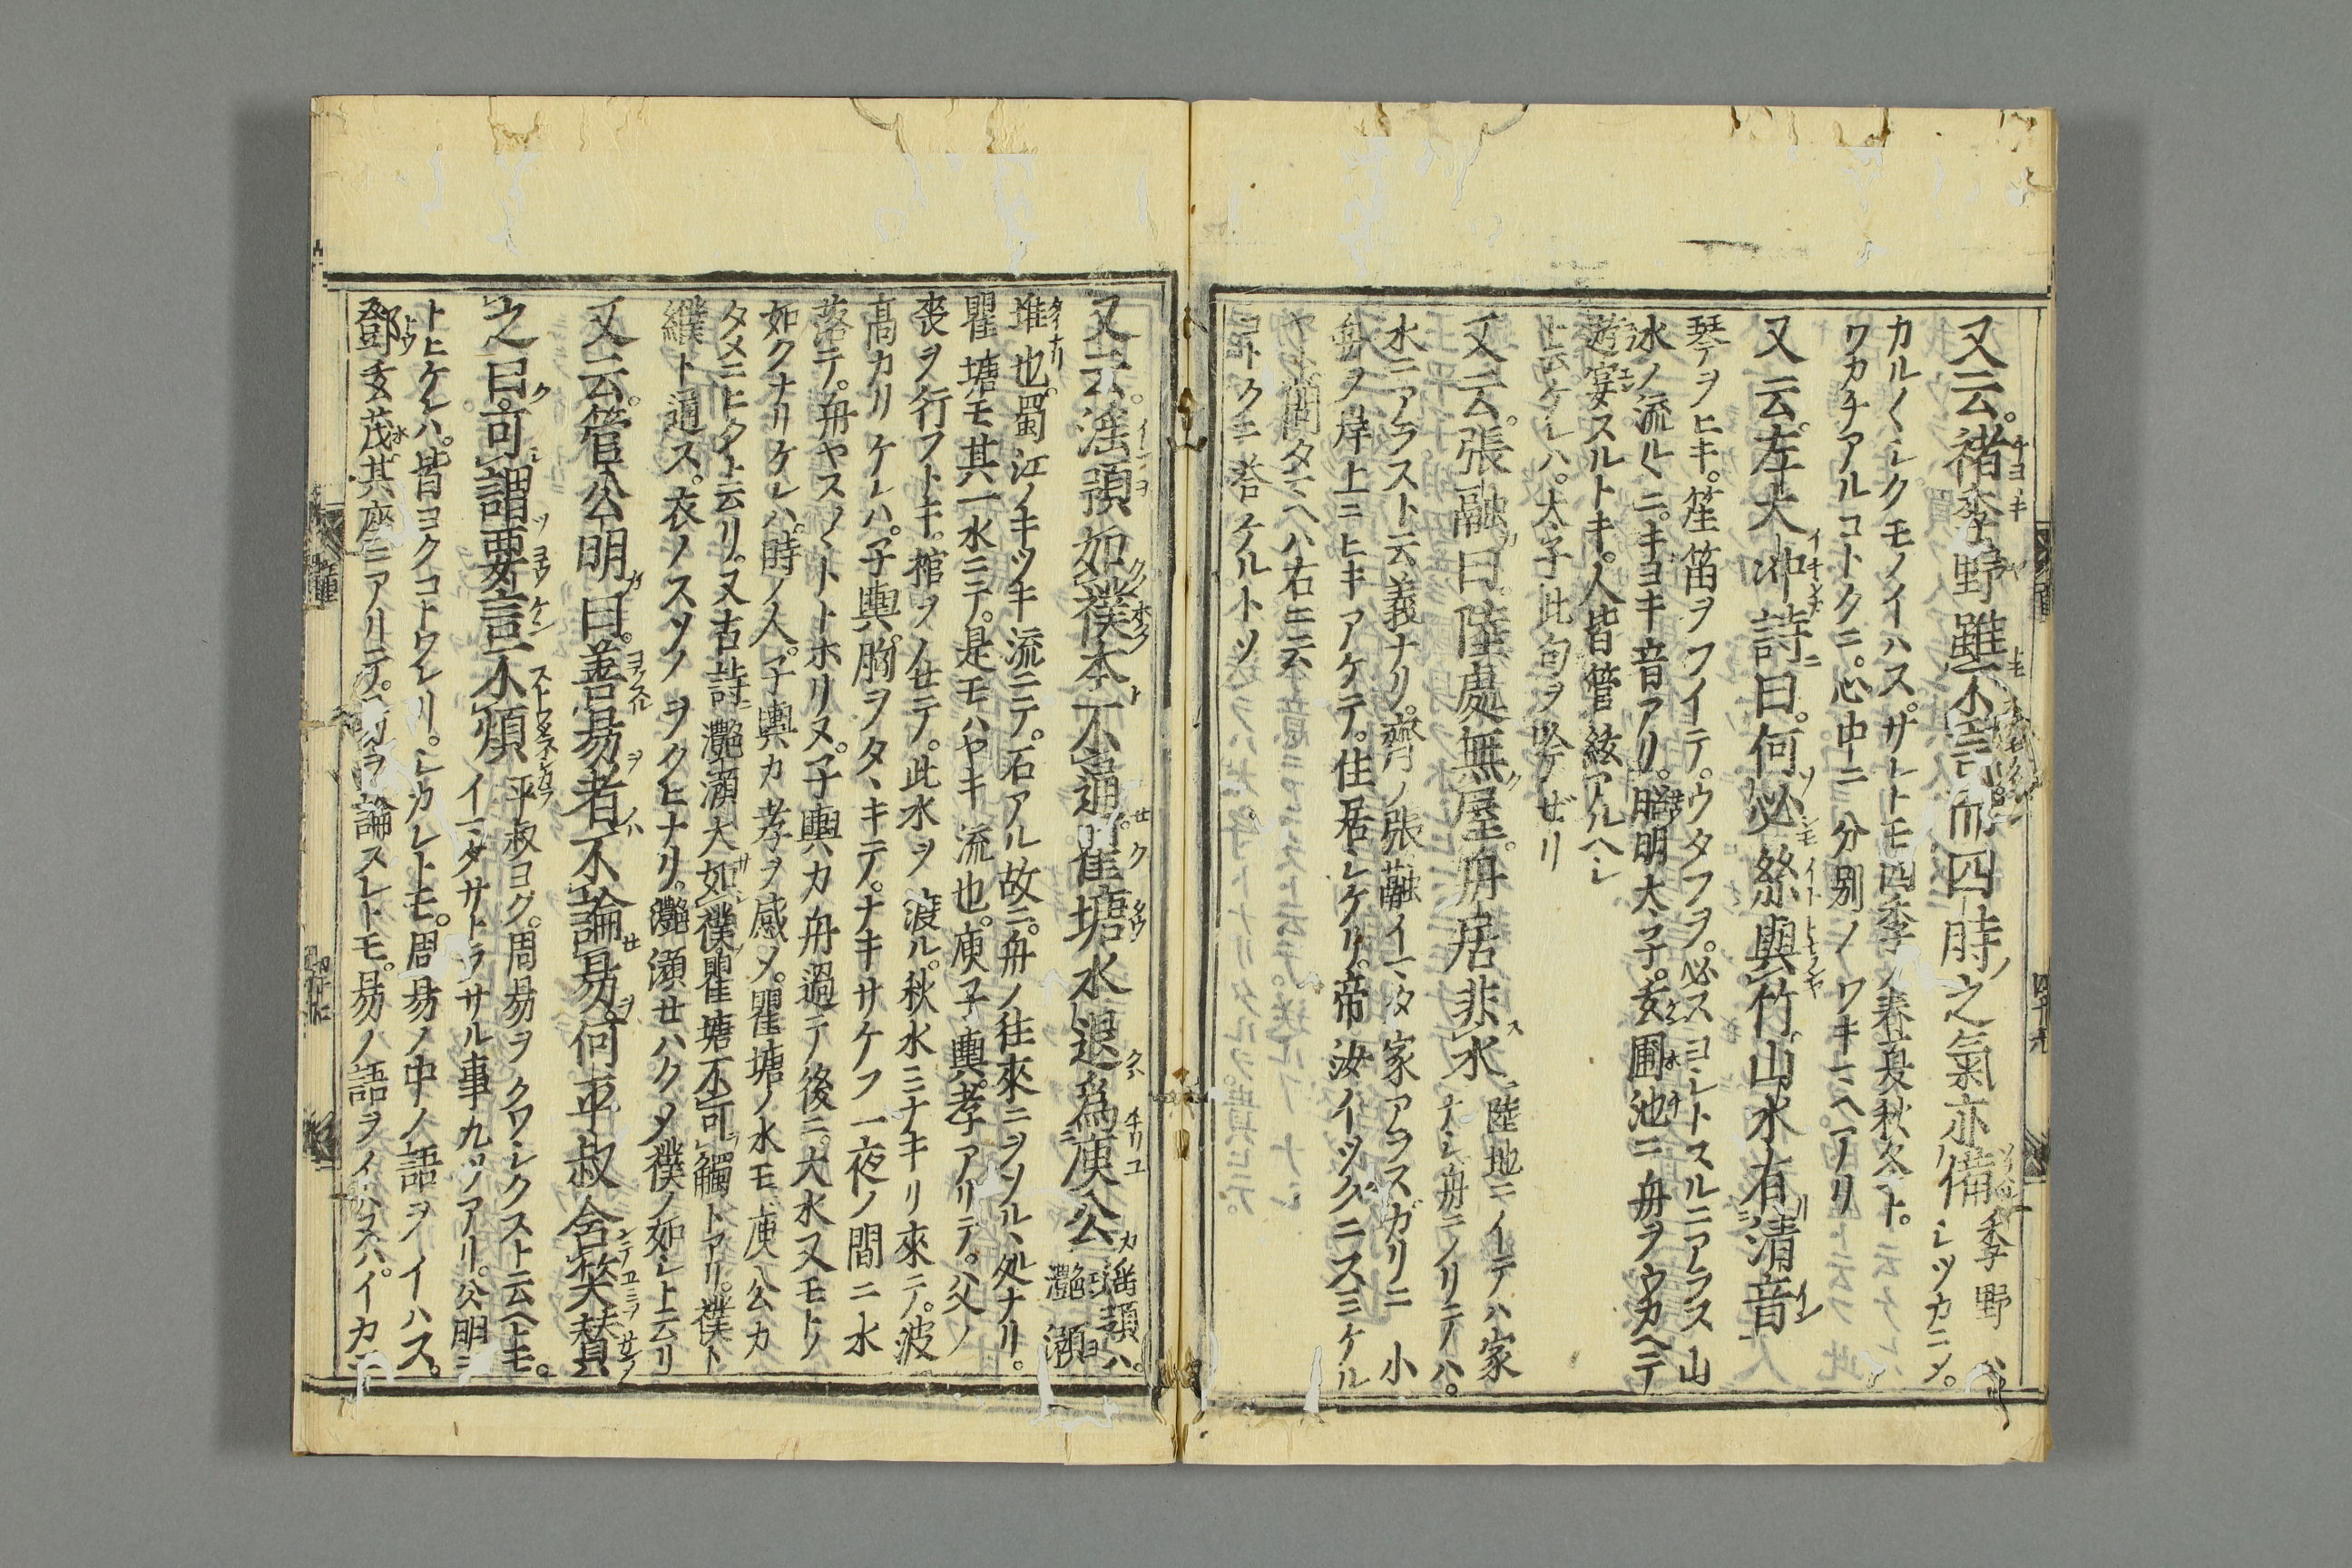 又云。褚季野雖不言而四時之氣亦備 季野ハシツカニメ。
カル〱シクモノイハス。サレトモ四季ノ春夏秋冬ト。
ワカチアルコトクニ。心中ニ分別ノワキマヘアリ
又云左大冲詩曰。何必絲與竹山水有清音
琴ヲヒキ。笙笛ヲフイテ。ウタフヲ。必スヨシトスルニアラス山
水ノ流ルヽニ。キヨキ音アリ。昭明太子。玄圃池ニ舟ヲウカヘテ
遊宴スルトキ。人皆管絃アルヘシ
ト云ケレハ。太子此句ヲ吟ゼリ
又云。張融曰陸處無屋。舟居非水 陸地ニイテハ家
ナシ舟ニノリテハ。
水ニアラスト云義ナリ。齊ノ張融イマタ家アラスガリニ小
舟ヲ岸上ニヒキアケテ。住居シケリ。帝汝イツクニスミケル
ヤト問タマヘハ右ニ云
コトクニ答ケルトソ
又云。淫預如襆本不通瞿塘水退為庾公 淫預ハ。
灔澦
堆也。蜀江ノキツキ流ニテ。石アル故ニ。舟ノ往來ニヲソルヽ処ナリ。
瞿塘モ其一水ニテ。是モハヤキ流也。庾子輿。孝アリテ。父ノ
喪ヲ行フトキ。棺ヲノせテ。此水ヲ渡ル。秋水ミナキリ來テ。波
髙カリケレハ。子輿。胸ヲタヽキテ。ナキサケフ一夜ノ間ニ水
落テ。舟ヤス〱トトホリヌ。子輿カ舟過テ後ニ。大水又モトノ
如クナリケレハ。時ノ人。子輿カ孝ヲ感メ。瞿塘ノ水モ庾公カ
タメニヒクト云リ。又古詩ニ灔澦大如襆瞿塘不可觸トアリ。襆ト
纀ト通ス。衣ノスソノヲクヒナリ。灔澦せハクメ襆ノ如シト云リ
又云。管公明曰。善易者不論易。何平叔含笑賛
之曰。可謂要言不煩 平叔ヨク。周易ヲクワシクスト云ヘトモ。
イマタサトラサル事九ツアリ。公明ニ
トヒケレハ。皆ヨクコトワレリ。シカレトモ。周易ノ中ノ語ヲイハス。
鄧玄茂其座ニアリテ。汝易ヲ論スレトモ。易ノ語ヲイハスハ。イカン